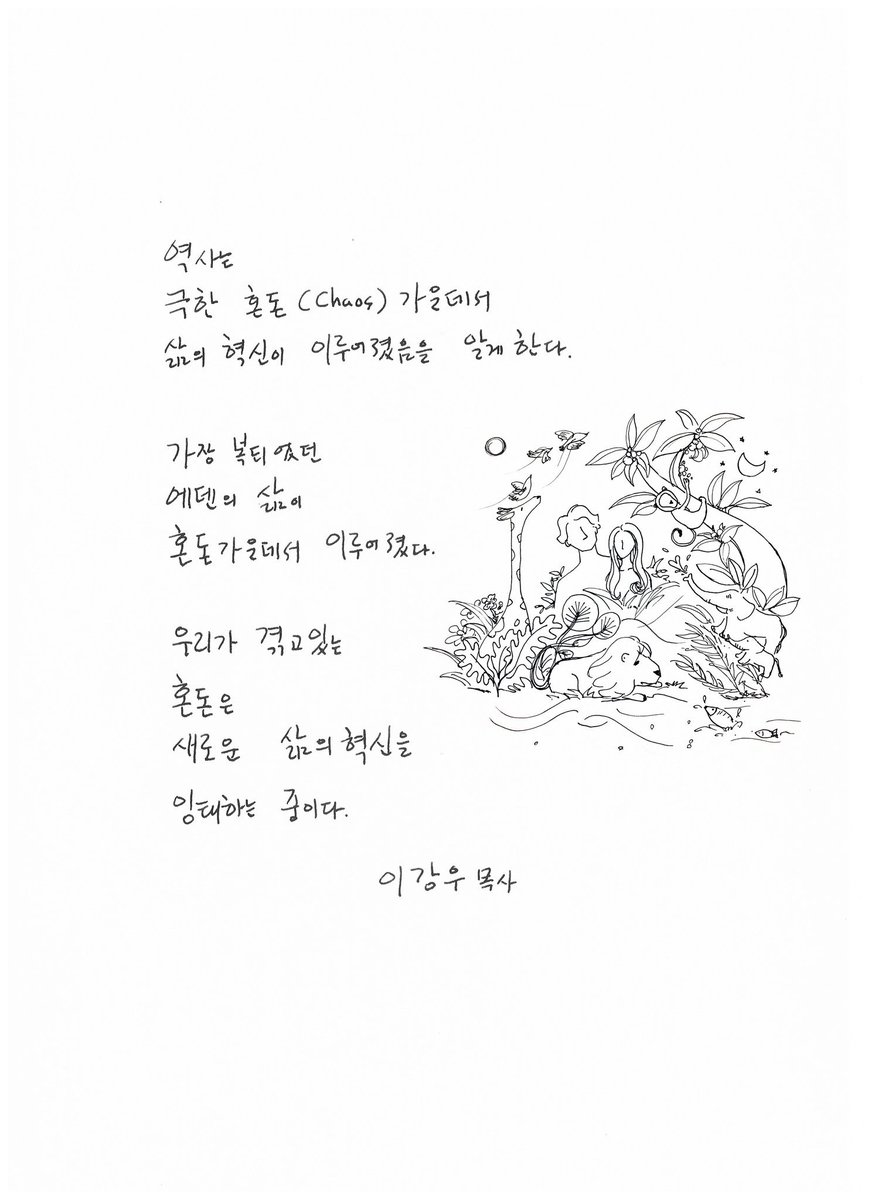 역사는
극한 혼돈 (Chaos) 가운데서
삶의 혁신이 이루어졌음을 알게 한다.
가장 복되었던
에덴의 삶이
혼돈 가운데서 이루어졌다.
우리가 겪고있는
혼돈은
새로운 삶의 혁신을
잉태하는 중이다.
이강우 목사